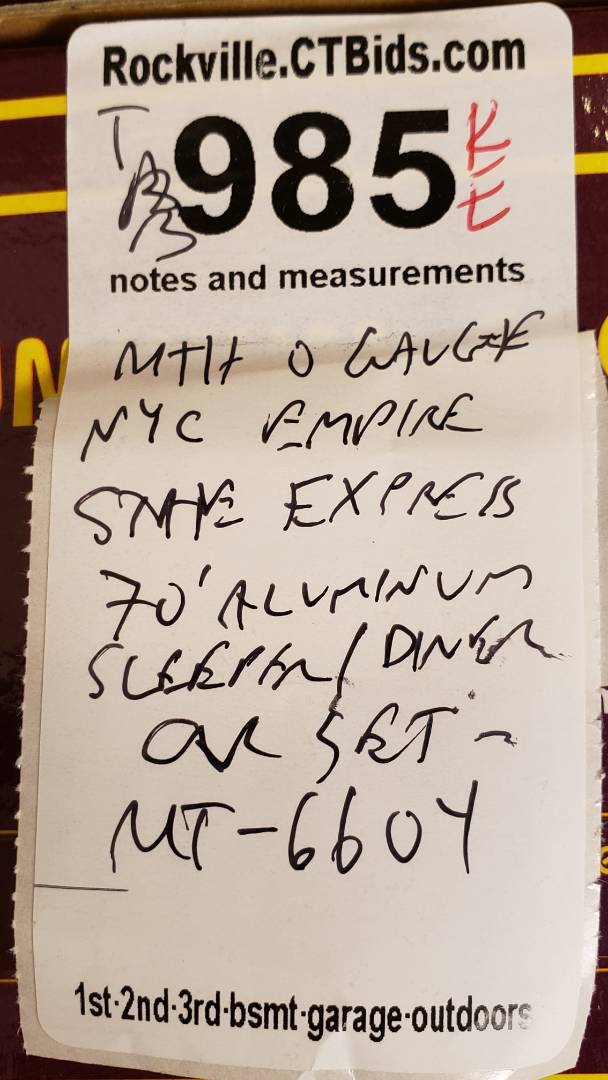 Rockville.CTBids.com
985
K
notes and measurements
MTH O GAUGE
NYC EMPIRE
STATE EXPRESS
70' ALUMINUM
SLEEPER/DINER
CAR SET -
MT-6604
1st·2nd·3rd·bsmt·garage·outdoors